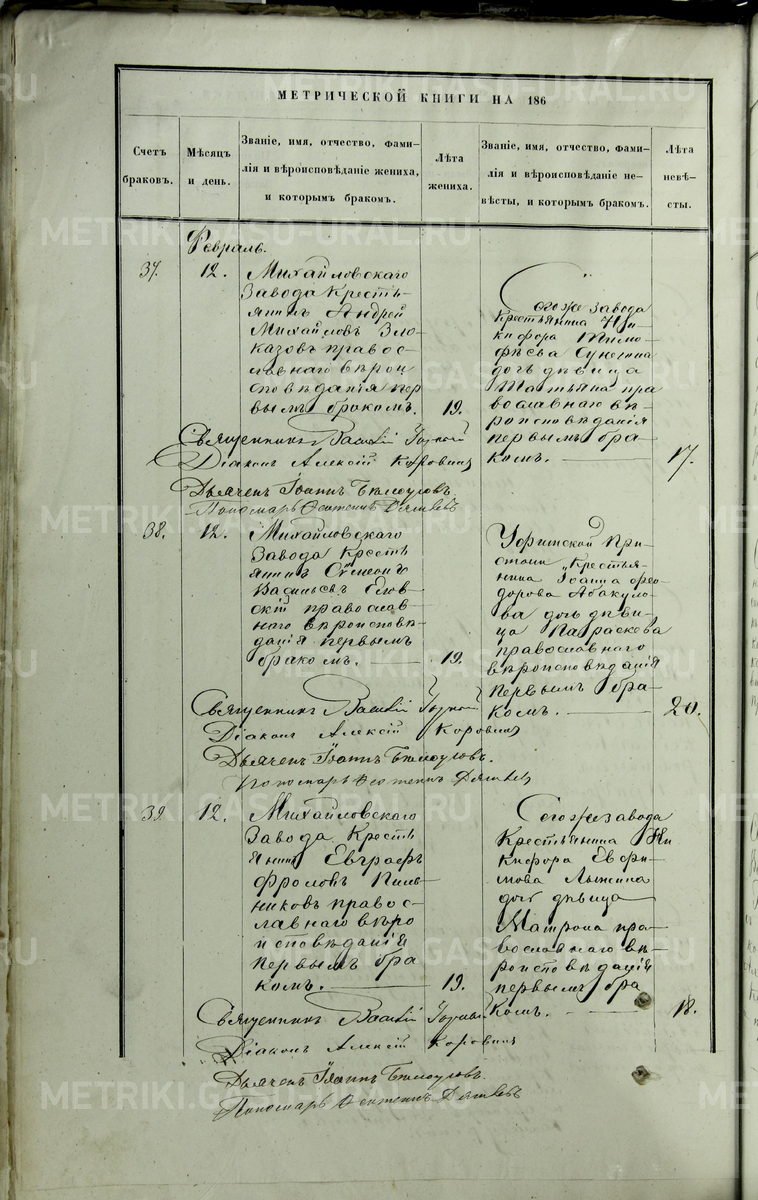 МЕТРИЧЕСКОЙ КНИГИ НА 186
Счетъ
браковъ.
Мѣсяцъ
и день.
Званіе, имя, отчество, фами-
лія и вѣроисповѣданіе жениха,
и которымъ бракомъ.
Лѣта
жениха.
Званіе, имя, отчество, фами-
лія и вѣроисповѣданіе не-
вѣсты, и которымъ бракомъ.
Лѣта
невѣ-
сты.
Февраль.
37.
12.
Михайловскаго
Завода Кресть-
янинъ Андрей
Михайловъ Зло-
казовъ правос-
лавнаго вѣрои
сповѣданія пер
вымъ бракомъ.
19.
Тогоже завода
Крестьянина Ни-
кифора Тимо-
фѣева
дочь дѣвица
Татьяна пра
вославнаго вѣ-
роисповѣданія
первымъ бра-
комъ.
17.
Священникъ Василій
Діаконъ Алексій Коровинъ
Дьячекъ Іоаннъ Бѣлоусовъ.
Пономарь
38.
12.
Михайловскаго
Завода Кресть
янинъ Сѵмеонъ
Васильевъ Елов-
скій православ-
наго вѣроисповѣ-
данія первымъ
бракомъ.
19.
Уфимской При-
стани Крестья-
нина Іоанна Фео-
дорова Абакуло-
ва дочь дѣви-
ца Параскева
православнаго
вѣроисповѣданія
первымъ бра-
комъ.
20.
Священникъ Василій
Діаконъ Алексій Коровинъ
Дьячекъ Іоаннъ Бѣлоусовъ.
Пономарь
39.
12.
Михайловскаго
Завода Кресть
янинъ Евграфъ
Фроловъ Пиль-
никовъ правос-
лавнаго вѣро
исповѣданія
первымъ бра
комъ.
19.
Тогоже завода
Крестьянина Ни
кифора Евфи-
мова Лыжина
дочь дѣвица
Матрона пра-
вославнаго вѣ-
роисповѣданія
первымъ бра
комъ.
18.
Священникъ Василій
Діаконъ Алексій Коровинъ
Дьячекъ Іоаннъ Бѣлоусовъ.
Пономарь
METRIKI.GASU-URAL.RU